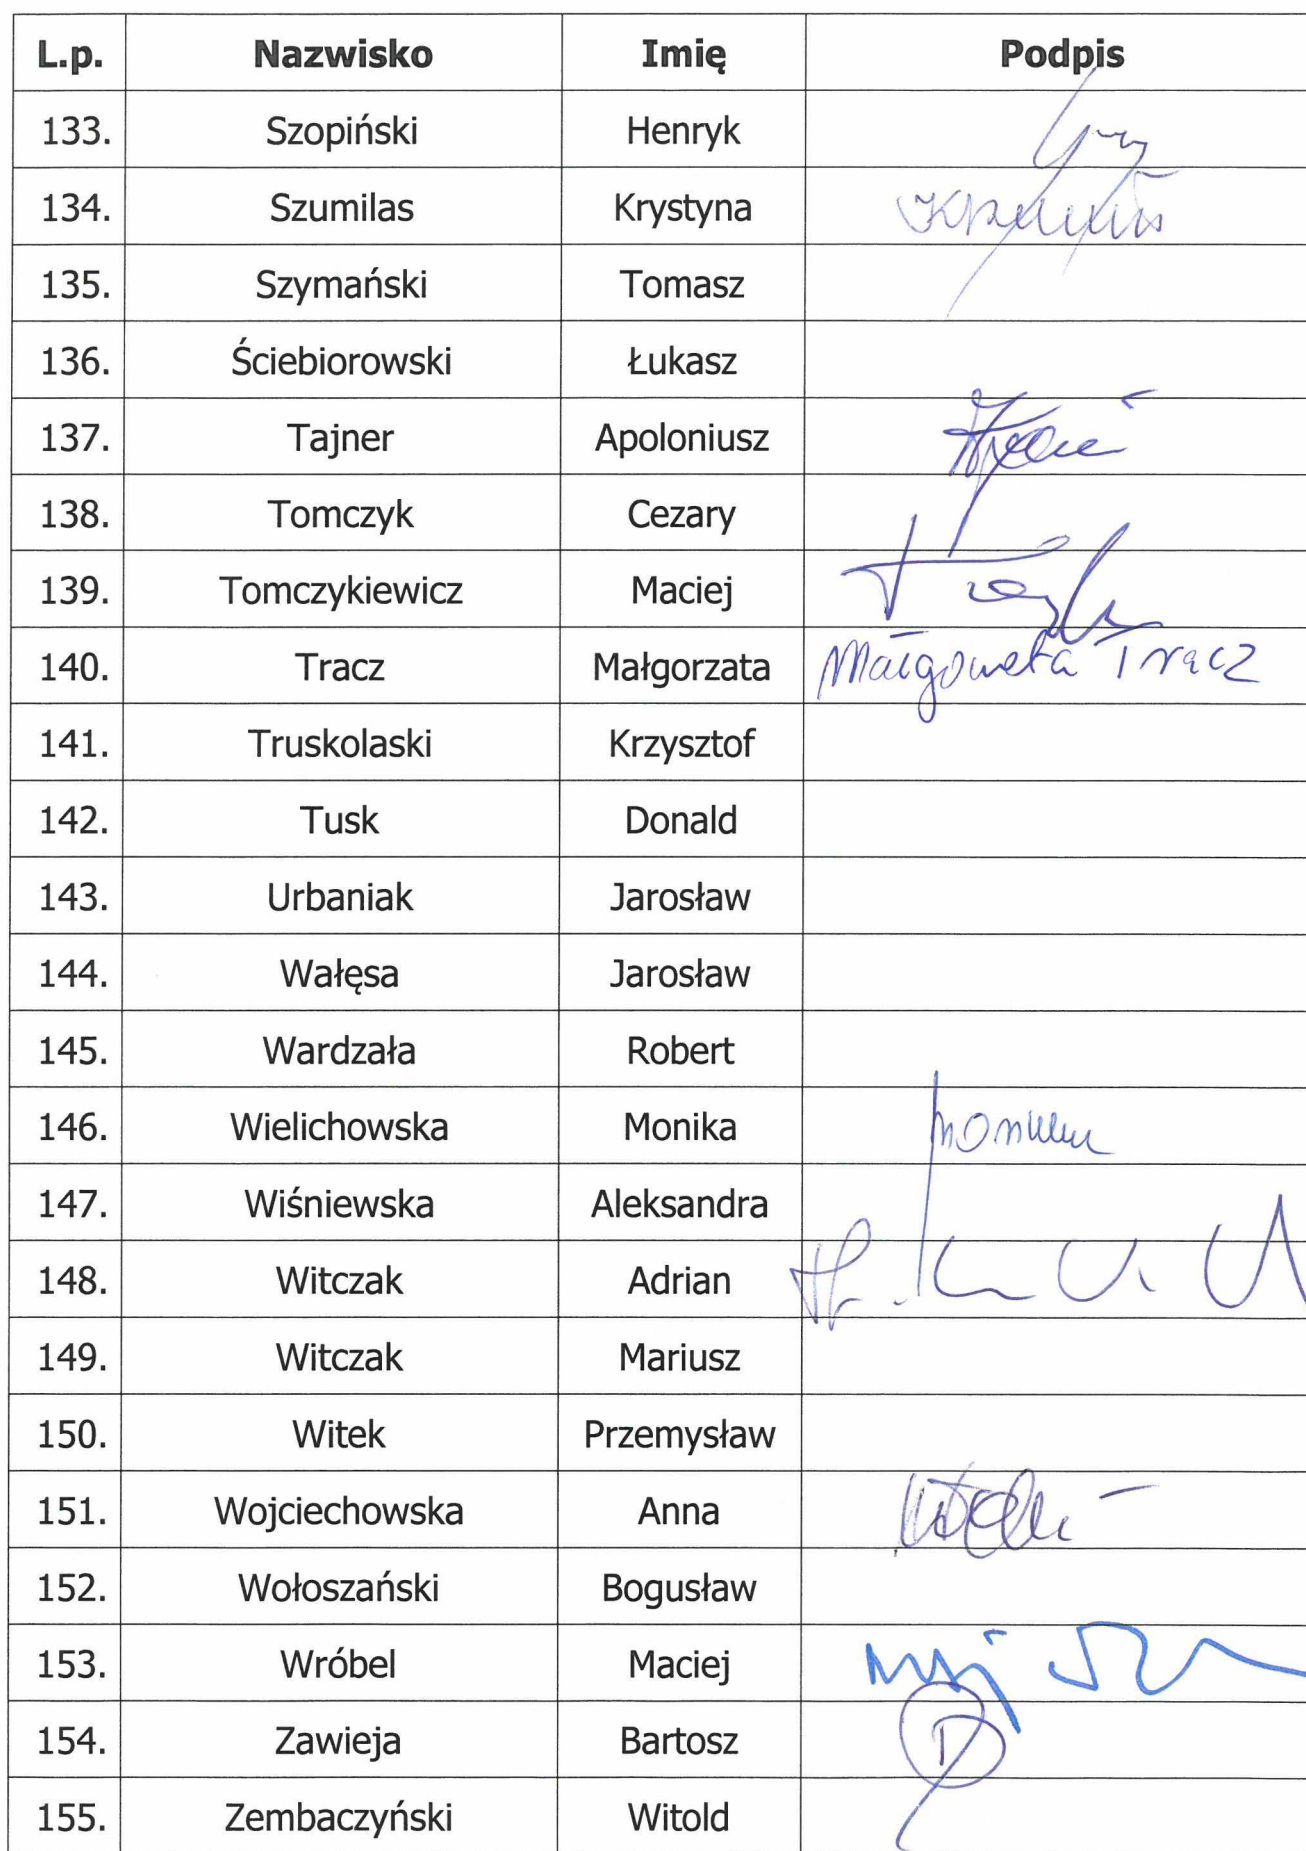 L.p. Nazwisko Imię Podpis
133. Szopiński Henryk
134. Szumilas Krystyna
135. Szymański Tomasz
136. Ściebiorowski Łukasz
137. Tajner Apoloniusz
138. Tomczyk Cezary
139. Tomczykiewicz Maciej
140. Tracz Małgorzata Małgorzata Tracz
141. Truskolaski Krzysztof
142. Tusk Donald
143. Urbaniak Jarosław
144. Wałęsa Jarosław
145. Wardzała Robert
146. Wielichowska Monika
147. Wiśniewska Aleksandra
148. Witczak Adrian
149. Witczak Mariusz
150. Witek Przemysław
151. Wojciechowska Anna
152. Wołoszański Bogusław
153. Wróbel Maciej
154. Zawieja Bartosz
155. Zembaczyński Witold